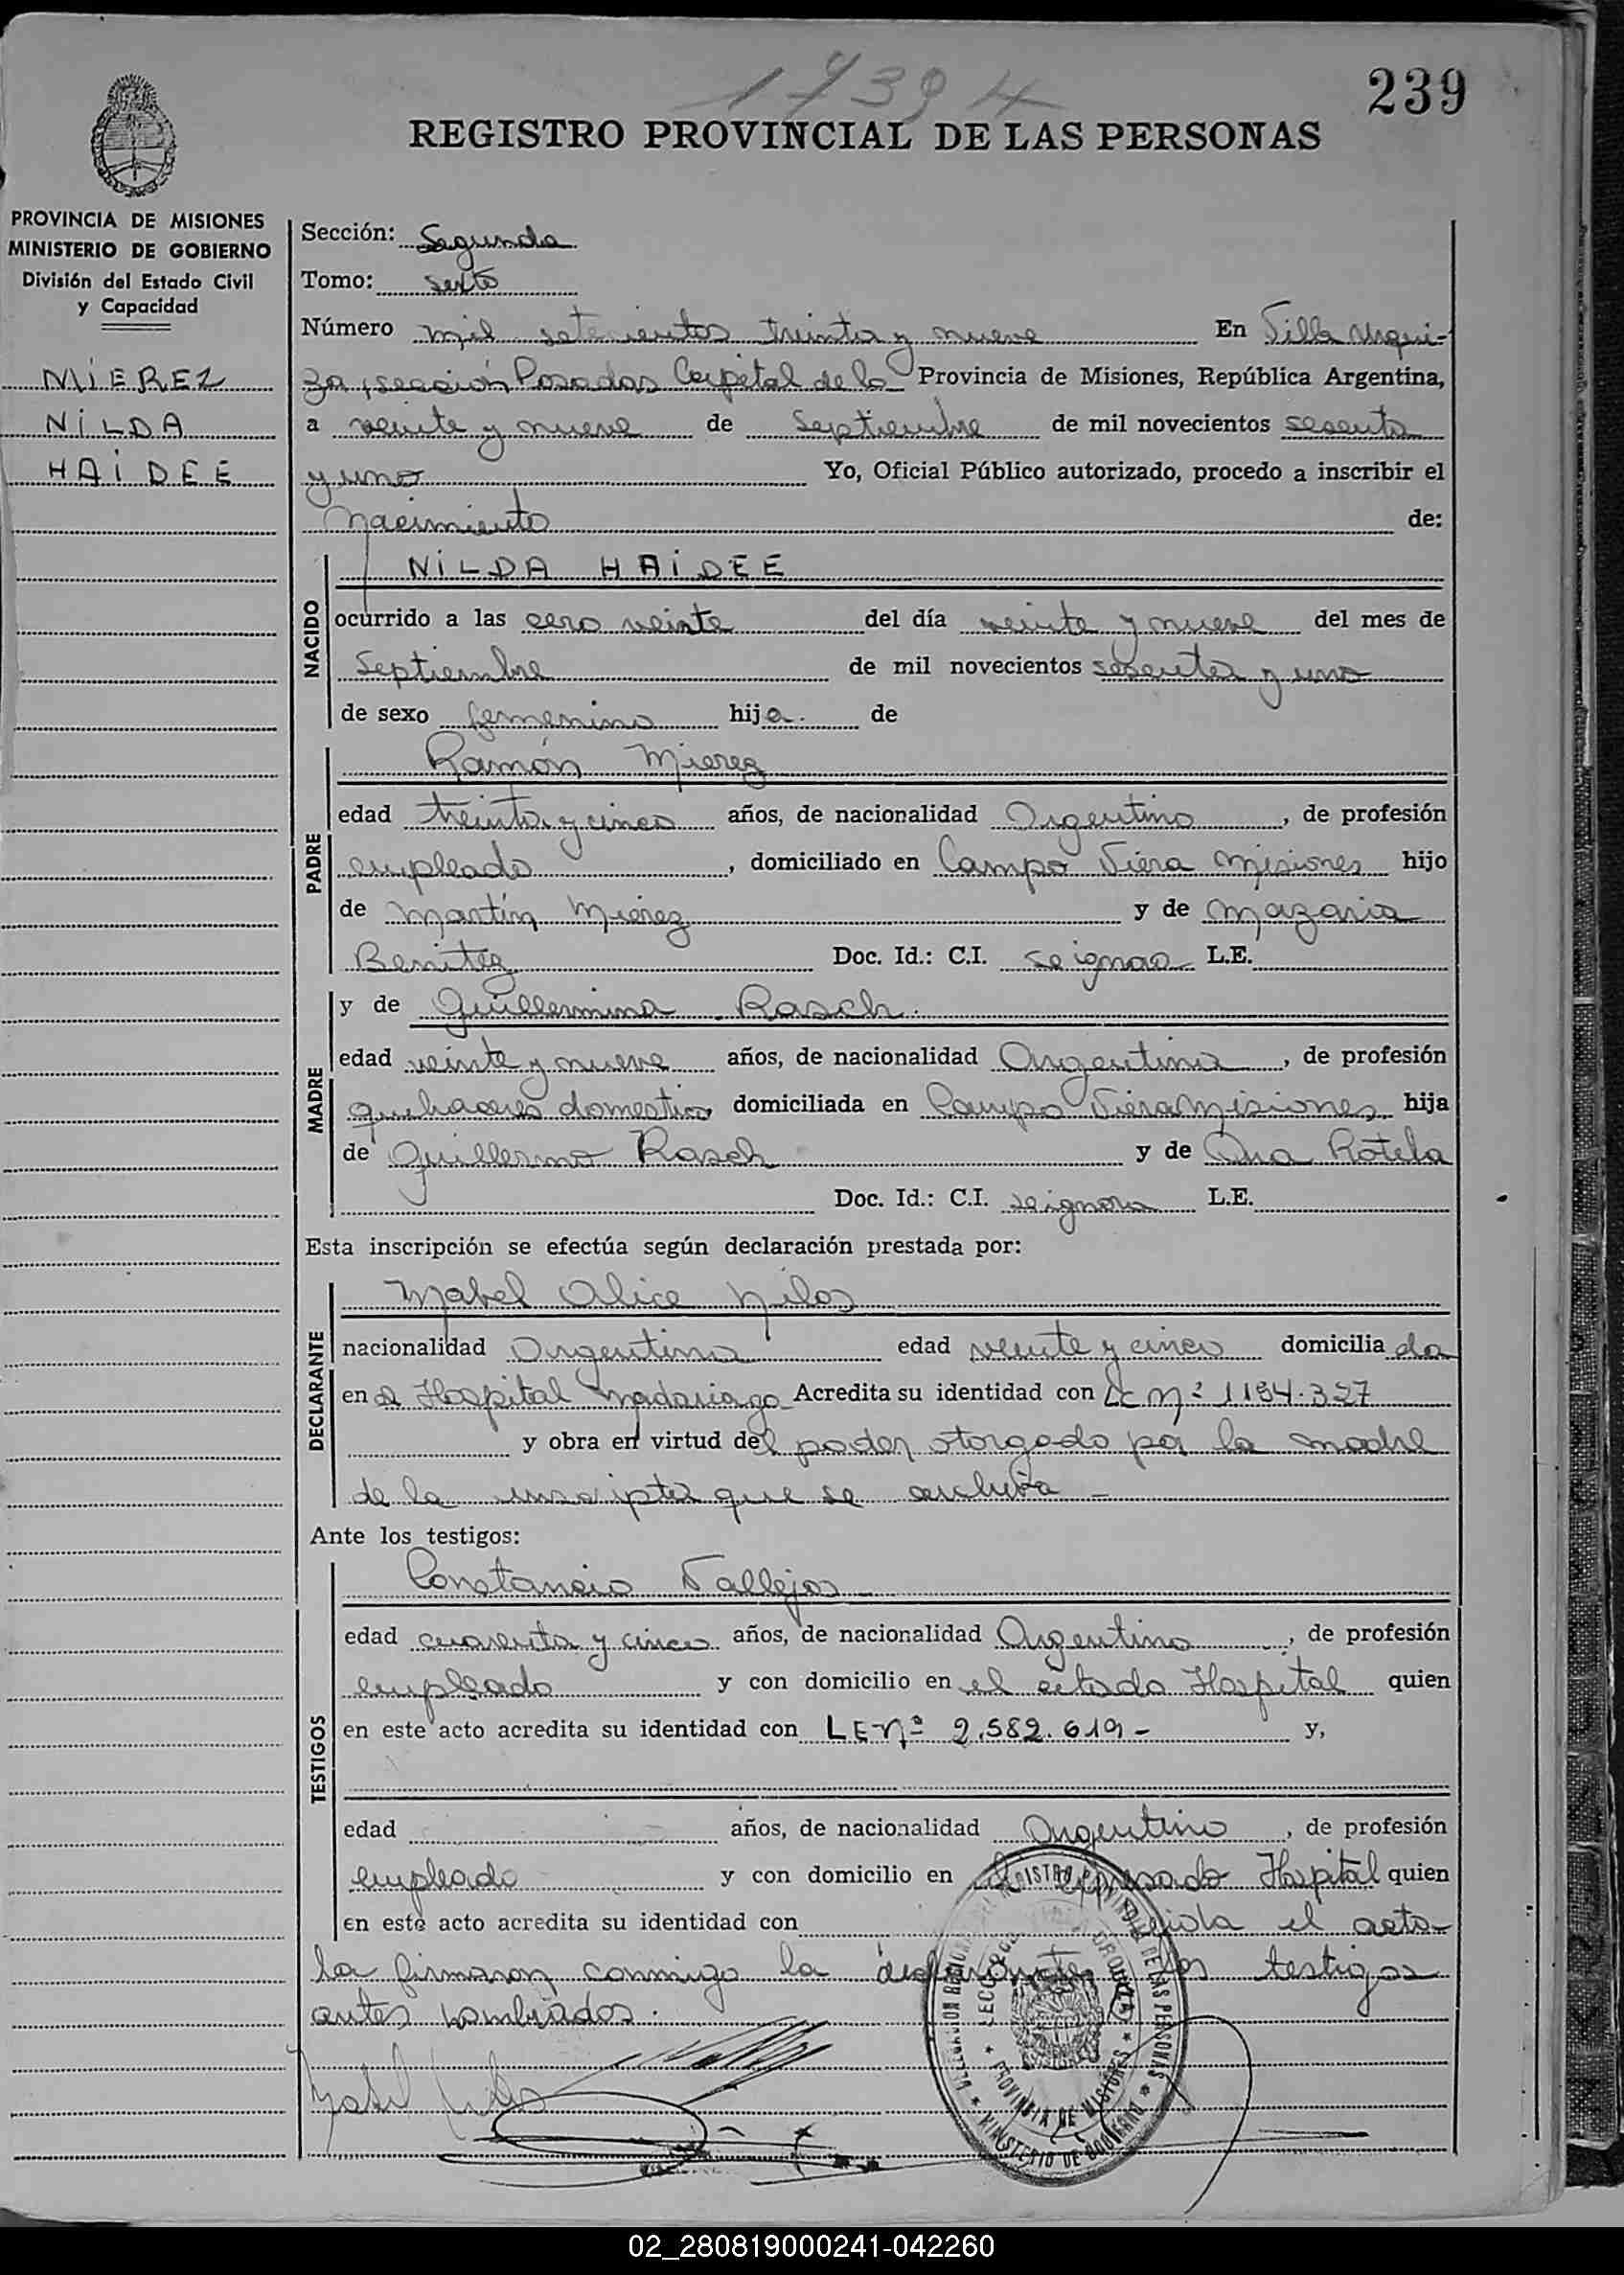 17394
239
REGISTRO PROVINCIAL DE LAS PERSONAS
PROVINCIA DE MISIONES
MINISTERIO DE GOBIERNO
División del Estado Civil
y Capacidad
MIEREZ
NILDA
HAIDEE
Sección: Segunda
Tomo: Sexto
Número mil setecientos treinta y nueve En Villa Urqui-
za, sección Posadas Capital de la Provincia de Misiones, República Argentina,
a veinte y nueve de Septiembre de mil novecientos sesenta
y uno Yo, Oficial Público autorizado, procedo a inscribir el
Nacimiento de:
NACIDO
NILDA HAIDEE
ocurrido a las cero veinte del día veinte y nueve del mes de
Septiembre de mil novecientos sesenta y uno
de sexo femenino hija. de
PADRE
Ramón Mierez
edad treinta y cinco años, de nacionalidad Argentino, de profesión
empleado, domiciliado en Campo Viera Misiones hijo
de Martín Mierez y de Mazaria
Benitez Doc. Id.: C.I. se ignora L.E.
MADRE
y de Guillermina Rasch.
edad veinte y nueve años, de nacionalidad Argentina, de profesión
quehaceres domestico domiciliada en Campo Viera Misiones hija
de Guillermo Rasch y de Ana Rotela
Doc. Id.: C.I. se ignora L.E.
Esta inscripción se efectúa según declaración prestada por:
DECLARANTE
Mabel Alice
nacionalidad Argentina edad veinte y cinco domiciliada
en el Hospital Madariaga Acredita su identidad con Lc Nº 1154.327
y obra en virtud del poder otorgado por la madre
de la inscripta que se archiva -
Ante los testigos:
TESTIGOS
Constancio Vallejos
edad cuarenta y cinco años, de nacionalidad Argentino, de profesión
empleado y con domicilio en el citado Hospital quien
en este acto acredita su identidad con LE Nº 2.582.619- y,
edad años, de nacionalidad Argentino, de profesión
empleado y con domicilio en el expresado Hospital quien
en este acto acredita su identidad con Leida el acta
la firmaron conmigo la declarante y los testigos
antes nombrados.
DELEGACION REGISTRO PROVINCIAL DE LAS PERSONAS
PROVINCIA DE MISIONES
MINISTERIO DE GOBIERNO
02_280819000241-042260